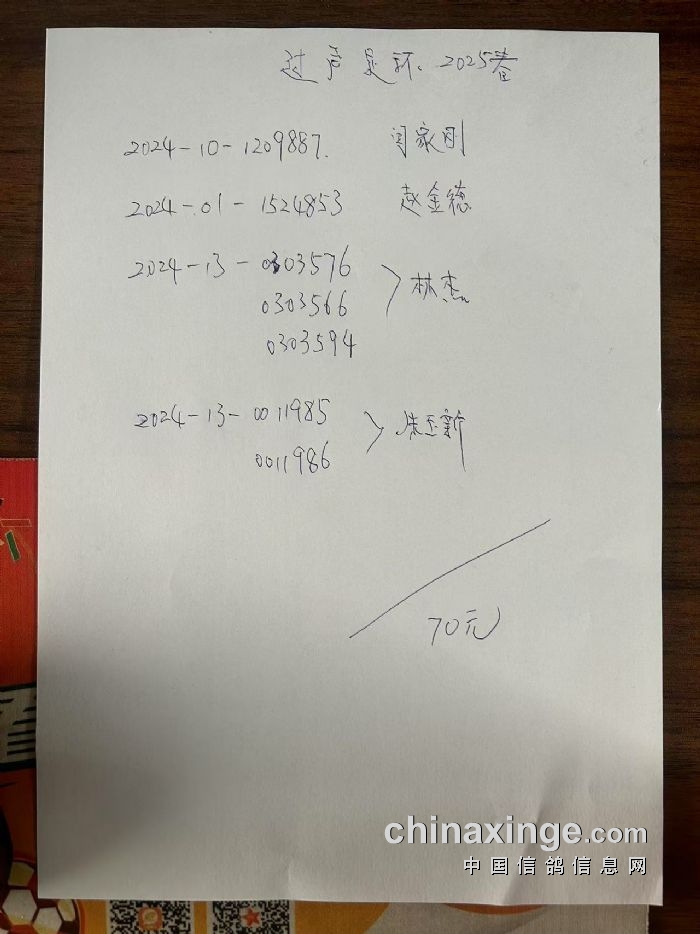 过声是环. 2025春
2024-10-1209887. 闫家刚
2024-01-1524853 赵金德
2024-13-0303576
0303566 林杰
0303594
2024-13-0011985
0011986
70元
chinaxinge.com
中国信鸽信息网